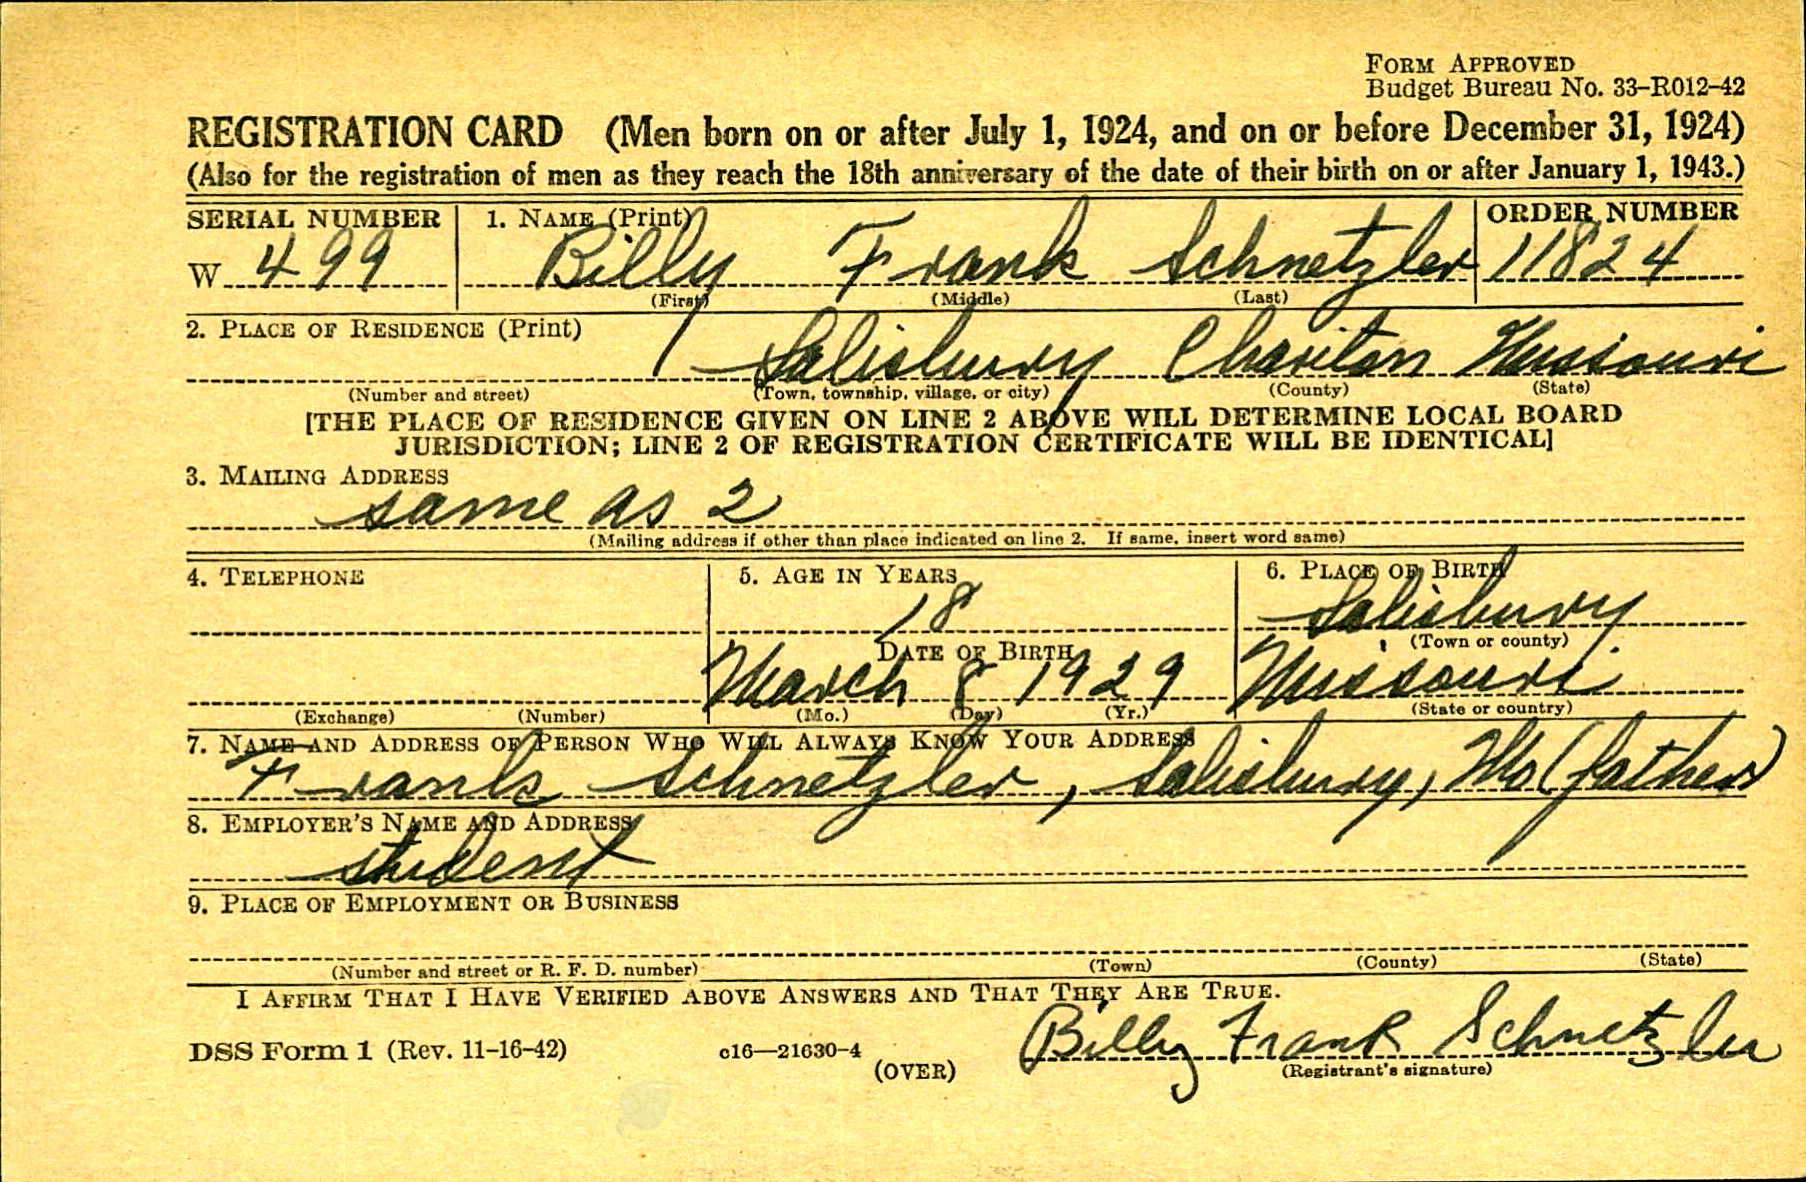 FORM APPROVED
Budget Bureau No. 33-R012-42
REGISTRATION CARD (Men born on or after July 1, 1924, and on or before December 31, 1924)
(Also for the registration of men as they reach the 18th anniversary of the date of their birth on or after January 1, 1943.)
SERIAL NUMBER 1. NAME (Print) ORDER NUMBER
W 499 Billy Frank Schnetzler 11824
(First) (Middle) (Last)
2. PLACE OF RESIDENCE (Print)
Salisbury Chariton Missouri
(Number and street) (Town, township, village, or city) (County) (State)
[THE PLACE OF RESIDENCE GIVEN ON LINE 2 ABOVE WILL DETERMINE LOCAL BOARD
JURISDICTION; LINE 2 OF REGISTRATION CERTIFICATE WILL BE IDENTICAL]
3. MAILING ADDRESS
same as 2
(Mailing address if other than place indicated on line 2. If same, insert word same)
4. TELEPHONE 5. AGE IN YEARS 6. PLACE OF BIRTH
18 Salisbury
DATE OF BIRTH (Town or county)
March 8 1929 Missouri
(Exchange) (Number) (Mo.) (Day) (Yr.) (State or country)
7. NAME AND ADDRESS OF PERSON WHO WILL ALWAYS KNOW YOUR ADDRESS
Frank Schnetzler, Salisbury, Mo (father)
8. EMPLOYER'S NAME AND ADDRESS
student
9. PLACE OF EMPLOYMENT OR BUSINESS
(Number and street or R. F. D. number) (Town) (County) (State)
I AFFIRM THAT I HAVE VERIFIED ABOVE ANSWERS AND THAT THEY ARE TRUE.
DSS Form 1 (Rev. 11-16-42) c16—21630-4 (OVER) Billy Frank Schnetzler
(Registrant's signature)